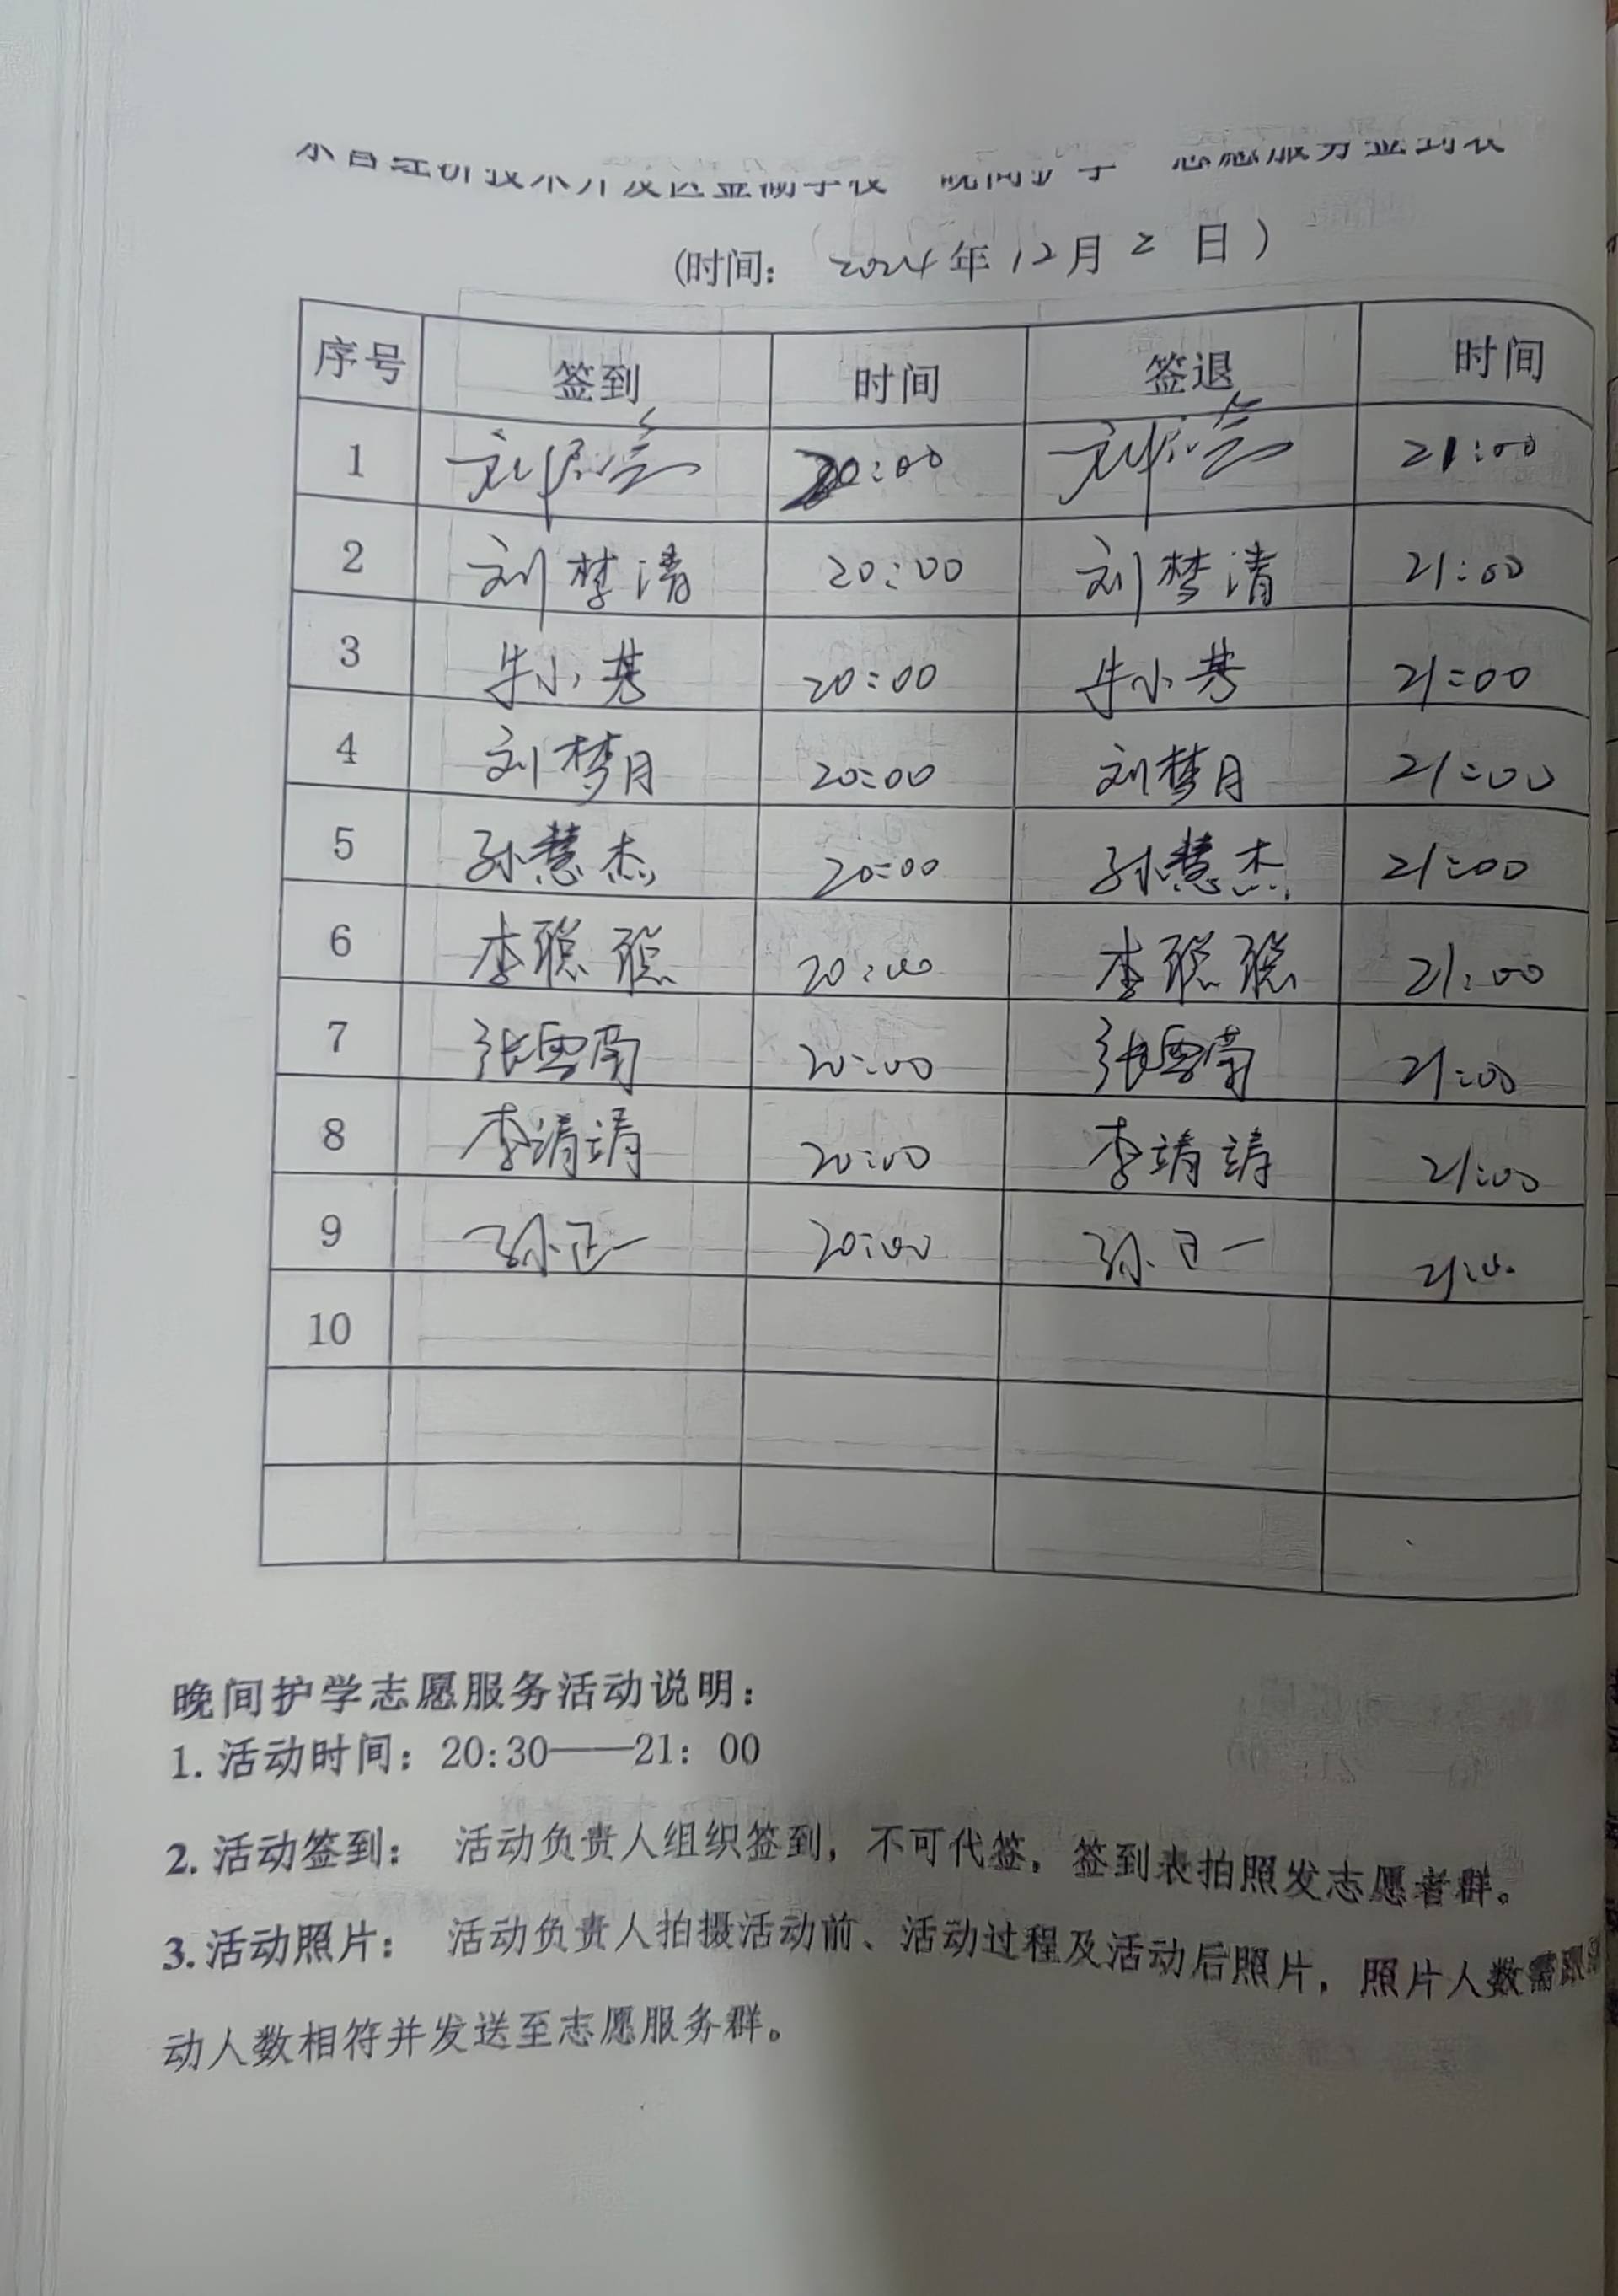 东昌经济技术开发区金湖学校 晚间护学 志愿服务签到表
(时间： 2024年12月2日)
序号 签到 时间 签退 时间
1 20:00 21:00
2 刘梦清 20:00 刘梦清 21:00
3 牛小芳 20:00 牛小芳 21:00
4 刘梦月 20:00 刘梦月 21:00
5 孙慧杰 20:00 孙慧杰 21:00
6 李聪聪 20:00 李聪聪 21:00
7 张雪南 20:00 张雪南 21:00
8 李靖靖 20:00 李靖靖 21:00
9 孙正一 20:00 孙正一 21:00
10
晚间护学志愿服务活动说明：
1. 活动时间：20:30——21：00
2. 活动签到： 活动负责人组织签到，不可代签，签到表拍照发志愿者群。
3. 活动照片： 活动负责人拍摄活动前、活动过程及活动后照片，照片人数需跟
动人数相符并发送至志愿服务群。